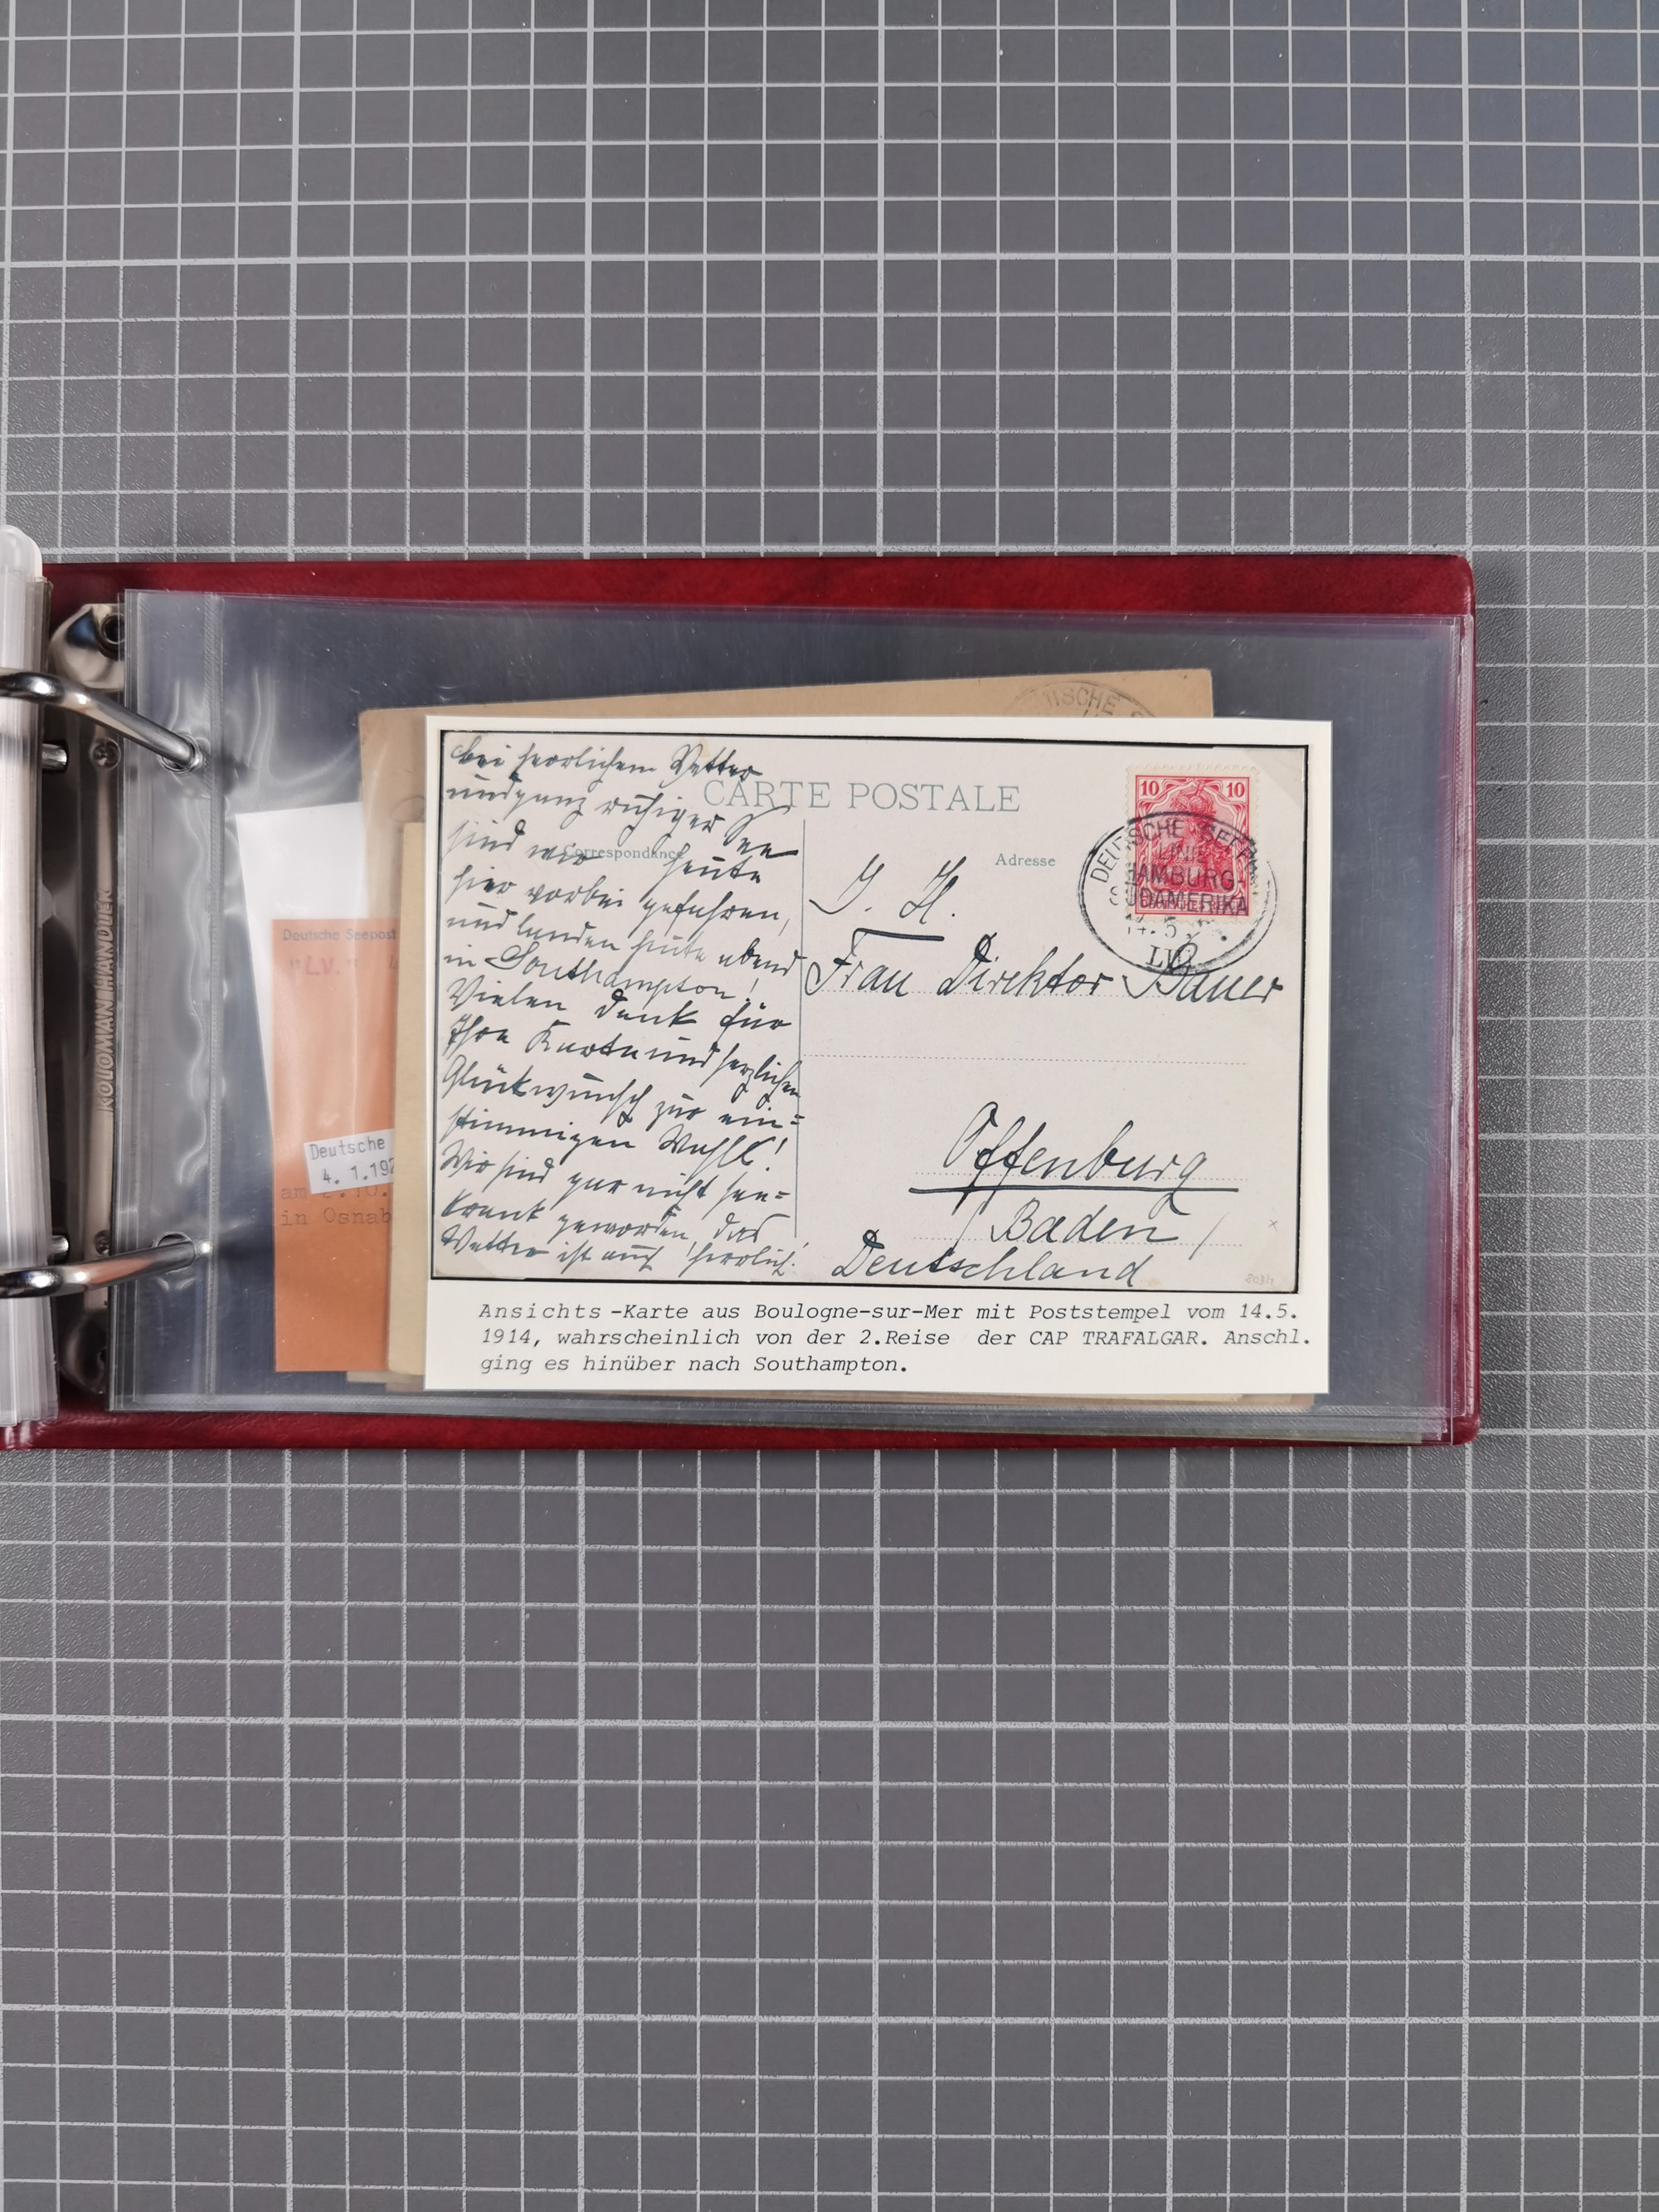 bei herrlichem Wetter
und ganz ruhiger See
sind wir heute
hier vorbei gefahren,
und landen heute abend
in Southampton!
Vielen Dank für
Ihre Karte und herzlichen
Glückwunsch zur ein=
stimmigen Wahl!
Wir sind gar nicht see=
krank geworden, das
Wetter ist auch herrlich!
CARTE POSTALE
Correspondance
Adresse
10 10
DEUTSCHE SEEPOST
LINIE
HAMBURG-
SÜDAMERIKA
14.5
I. H.
Frau Direktor Bauer
Offenburg
/ Baden /
Deutschland
Ansichts-Karte aus Boulogne-sur-Mer mit Poststempel vom 14.5.
1914, wahrscheinlich von der 2.Reise der CAP TRAFALGAR. Anschl.
ging es hinüber nach Southampton.
Deutsche Seepost
"L.V."
Deutsche
4. 1.192
in Osnab
TSCHE
KOLOMAN HANDLER